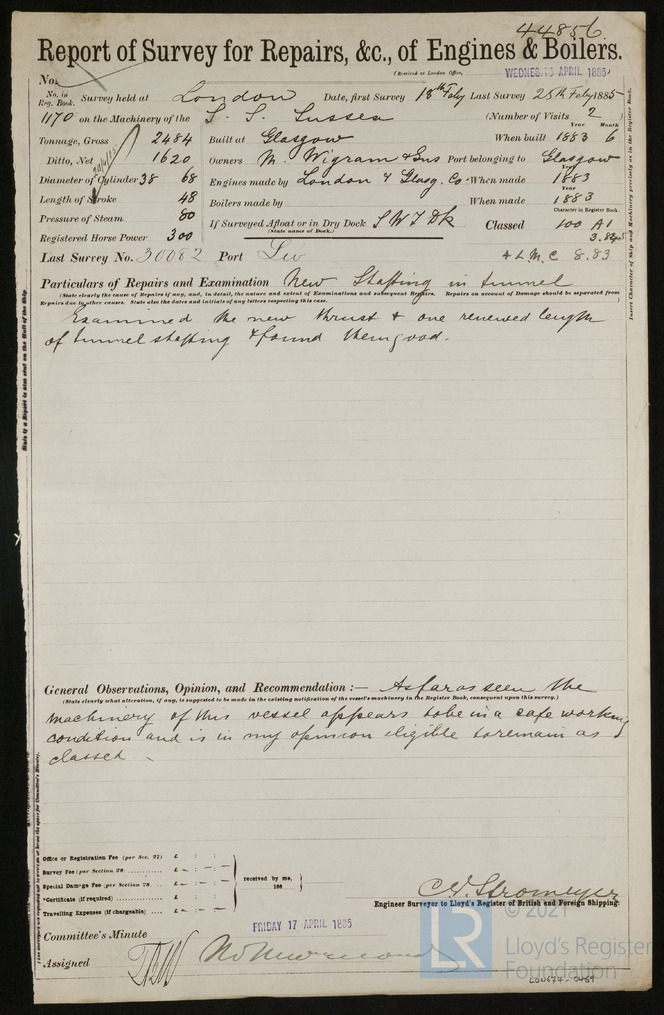 44856
Report of Survey for Repairs, &c., of Engines & Boilers.
No.
(Received at London Office, WEDNES. 15 APRIL 1885)
No. in Reg. Book. Survey held at London Date, first Survey 18th Feby Last Survey 25th Feby 1885
1170 on the Machinery of the S. S. Sussex (Number of Visits 2)
Tonnage, Gross 2484 Built at Glasgow When built Year 1883 Month 6
Ditto, Net 1620 Owners M. Wigram & Sns Port belonging to Glasgow
Diameter of Cylinder 38 68 Engines made by London & Glasg. Co. When made Year 1883
Length of Stroke 48 Boilers made by When made Year 1883
Pressure of Steam 80 If Surveyed Afloat or in Dry Dock S W I Dk Classed Character in Register Book. 100 A1
(State name of Dock.)
Registered Horse Power 300 3.84
Last Survey No. 30082 Port + L M C 8.83
Particulars of Repairs and Examination New Shafting in tunnel
(State clearly the cause of Repairs if any, and, in detail, the nature and extent of Examinations and subsequent Repairs. Repairs on account of Damage should be separated from
Repairs due to other causes. State also the dates and initials of any letters respecting this case.)
Examined the new thrust & one renewed length
of tunnel shafting & found them good.
General Observations, Opinion, and Recommendation :— As far as seen the
(State clearly what alteration, if any, is suggested to be made in the existing notification of the vessel's machinery in the Register Book, consequent upon this survey.)
machinery of this vessel appears to be in a safe working
condition and is in my opinion eligible to remain as
classed.
Office or Registration Fee (per Sec. 27) £ : :
Survey Fee (per Section 28 £ : :
Special Damage Fee (per Section 28. £ : :
*Certificate (if required) £ : :
Travelling Expenses (if chargeable) £ : :
received by me,
188
C. E. Stromeyer
Engineer Surveyor to Lloyd's Register of British and Foreign Shipping.
Committee's Minute FRIDAY 17 APRIL 1885
Assigned
LR
© 2021
Lloyd's Register
Foundation
LON674-0459
Insert Character of Ship and Machinery precisely as in the Register Book.